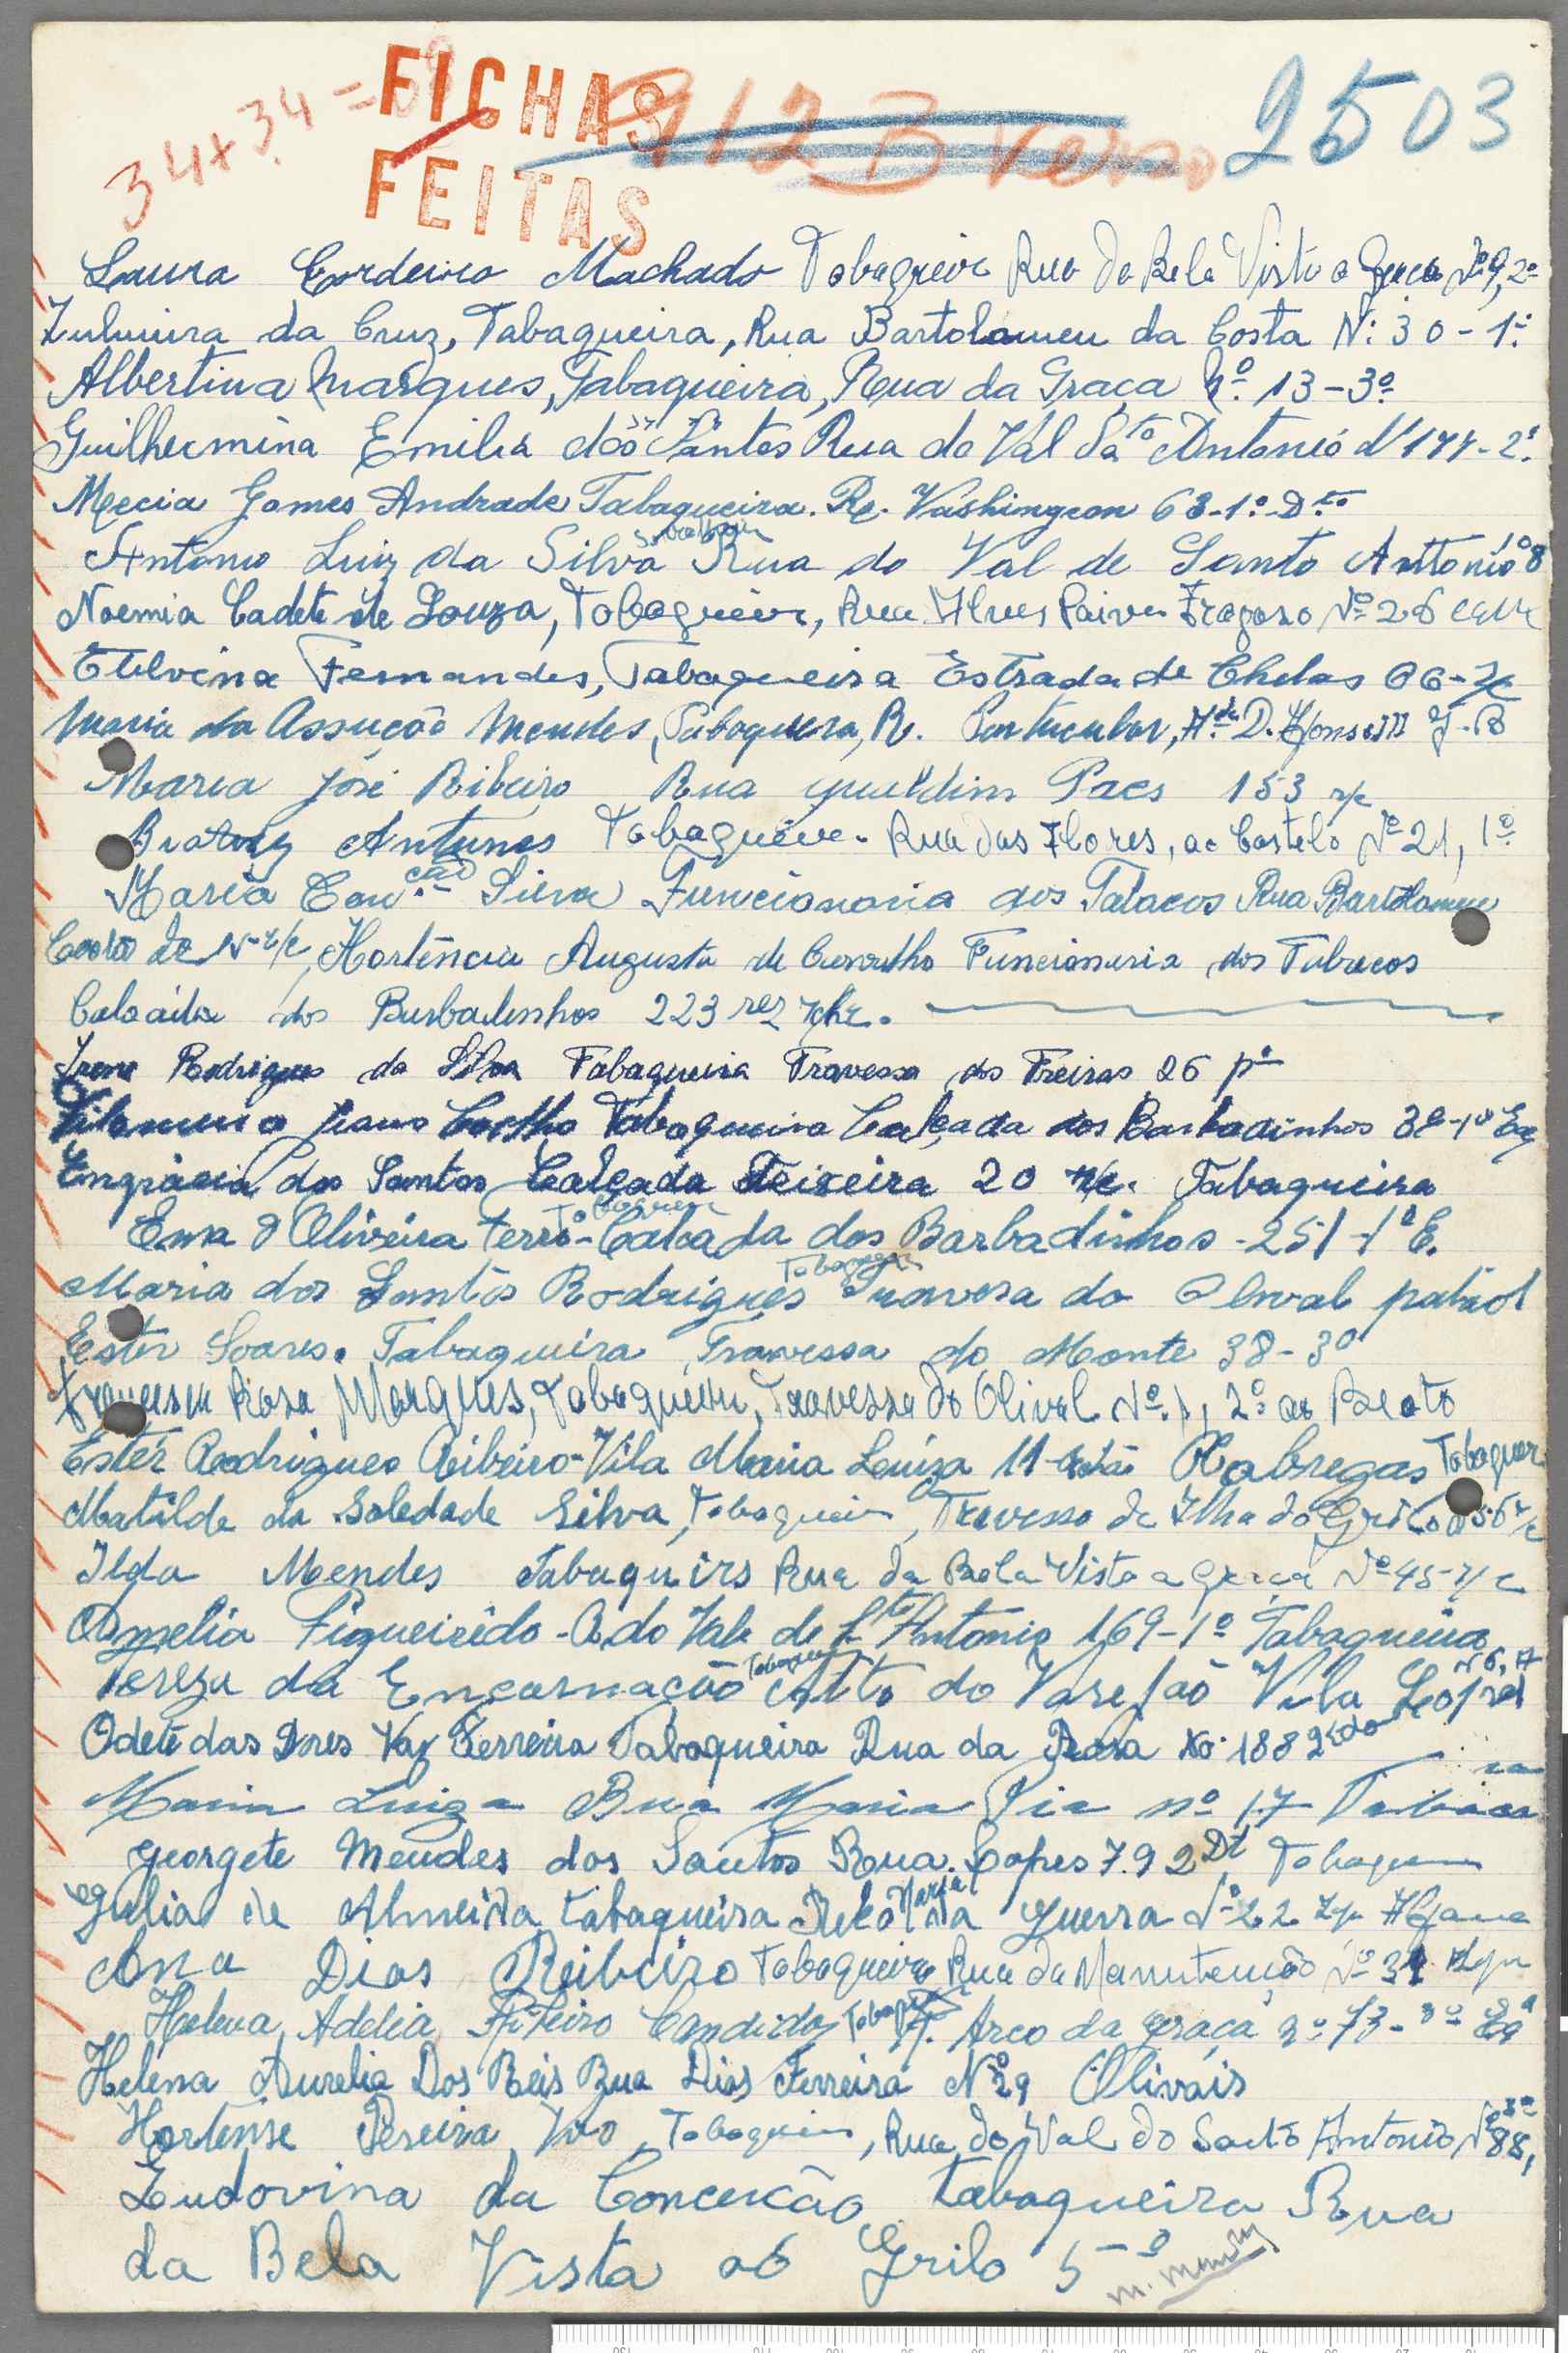 34+34=
FICHAS
FEITAS
912 B Verso
2503
Laura Cordeiro Machado Tabaqueira Rua da Bela Vista a Graça Nº 9, 2º
Zulmira da Cruz, Tabaqueira, Rua Bartolomeu da Costa Nº 30-1º
Albertina Marques, Tabaqueira, Rua da Graça Nº 13-3º
Guilhermina Emilia dos Santos Rua do Val Stº Antonio Nº 2º
Mecia Gomes Andrade Tabaqueira. Re. Vashingeon 63-1º-Dto
Antonio Luiz da Silva Rua do Val de Santo Anttonio 108
Noemia Cadete de Souza, Tabaqueira, Rua Alves Paiva Fragoso Nº 26 cave
Etelvina Fernandes, Tabaqueira Estrada de Chelas 66-r/c
Maria da Assução Mendes, Tabaqueira, R. Particular, A.da D. Afonso III J-B
Maria José Ribeiro Rua gualdim Paes 153 r/c
Beatriz Antunes Tabaqueira Rua das Flores, ao Castelo Nº 21, 1º
Maria Concção Silva Funcionaria dos Tabacos Rua Bartolomeu
Costa r/c, Hortência Augusta de Carvalho Funcionaria dos Tabacos
Calcáda dos Barbadinhos 223 rez
Irene Rodrigues da Silva Tabaqueira Travessa das Freiras 26
Coelho Tabaqueira Calçada dos Barbadinhos 38-1º Esq
Engrácia dos Santos Calçada Teixeira 20 r/c. Tabaqueira
Ema d'Oliveira Ferro-Calcada dos Barbadinhos -251-1º E.
Maria dos Santos Rodrigues Tabaqueira Travesa do Olival
Ester Soares. Tabaqueira Travessa do Monte 38-3º
Francisca Rosa Marques, Tabaqueira, Travessa do Olival Nº 1, 2º ao Beato
Ester Rodrigues Ribeiro-Vila Maria Luiza 11- Xabregas Tabaquer
Matilde da Soledade Silva, Tabaqueira, Travessa da Ilha do Grilo r/c
Ilda Mendes Tabaquirs Rua da Bela Vista a graça Nº 45-r/c
Amelia Figueirêdo-R. do Vale de Stº Antonio 169-1º Tabaqueira
Tereza da Encarnação Tabaqueira Alto do Varejão Vila
Odete das Dores Vaz Ferreira Tabaqueira Rua da Rosa Nº 188 2
Maria Luiza Rua Maria Pia nº 17
georgete Mendes dos Santos Rua Lopes 79 2 Dt Tabaqueira
Julia de Almeida tabaqueira Maria da Guerra Nº 22
Ana Dias Ribeiro Tabaqueira Rua da Manutenção Nº 31
Helena Adelia Candida Arco da graça nº 73-3º Esq
Helena Aurelia Dos Reis Rua Dias Ferreira Nº 29 Olivais
Hortense Pereira Tabaqueira, Rua do Val do Santo Antonio Nº 88, 3º
Ludovina da Conceicão Tabaqueira Rua
da Bela Vista aó Grilo 5-º